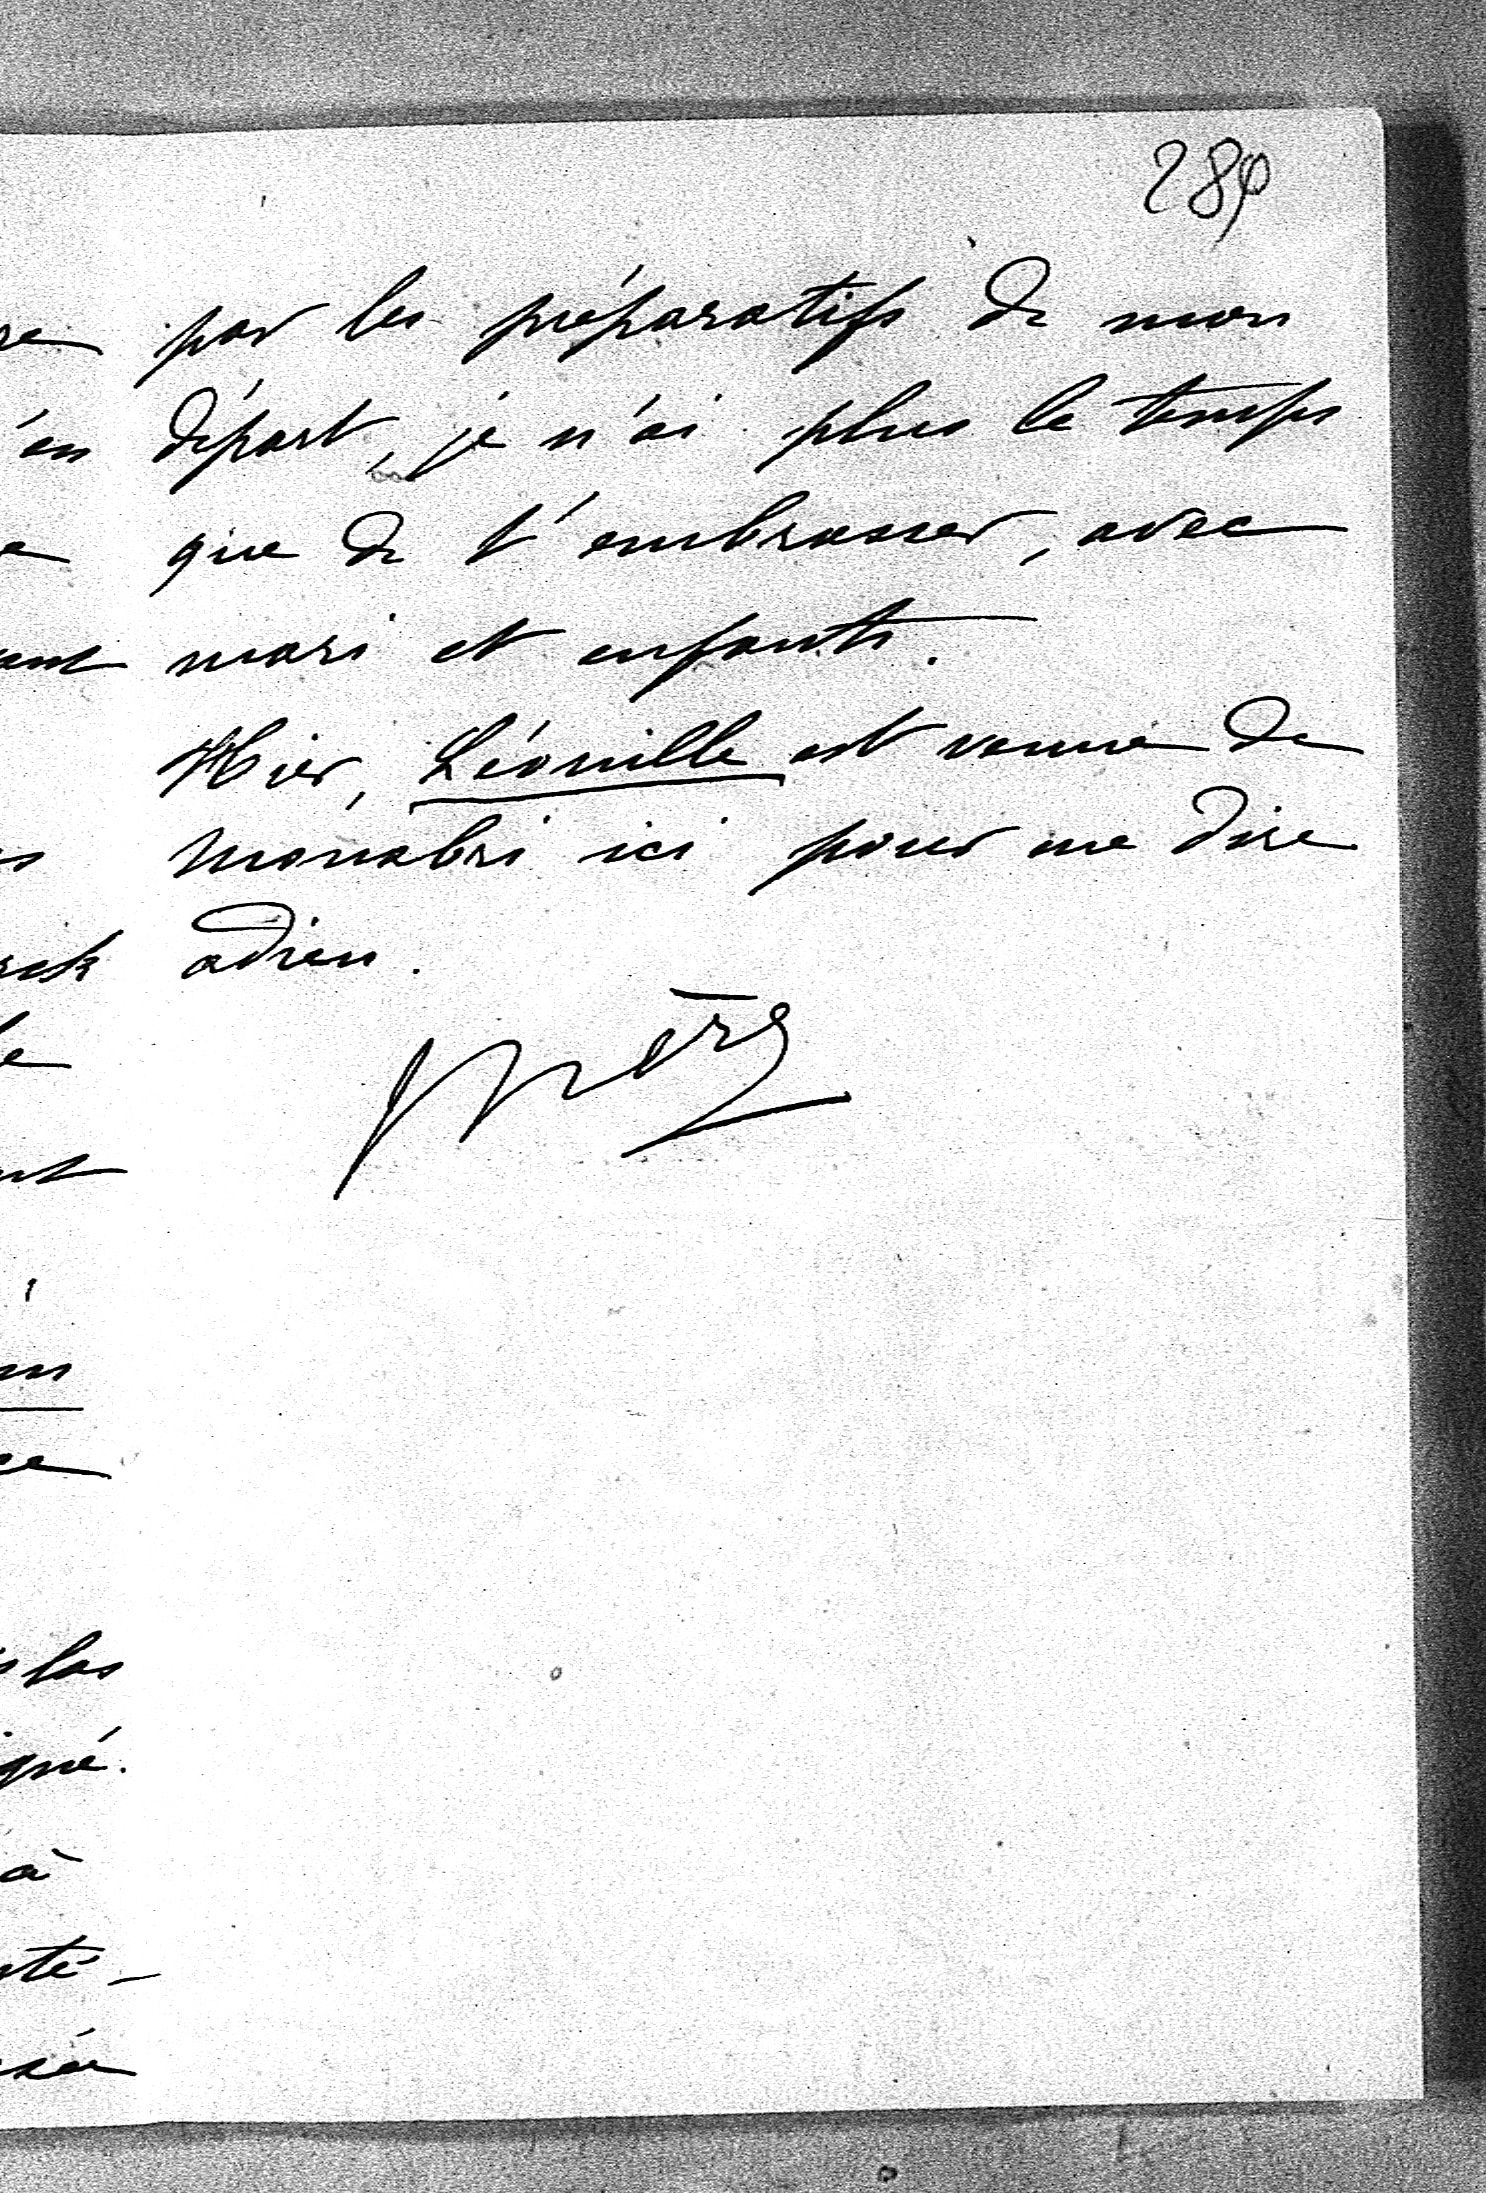 289
par les préparatifs de mon
départ, je n'ai plus le temps
que de t'embrasser, avec
mari et enfants.
Hier, Léonille est venue de
Monabri ici pour me dire
adieu.
re
'en
e
ant
s
rck
le
nt
ce
las
igné.
à
té-